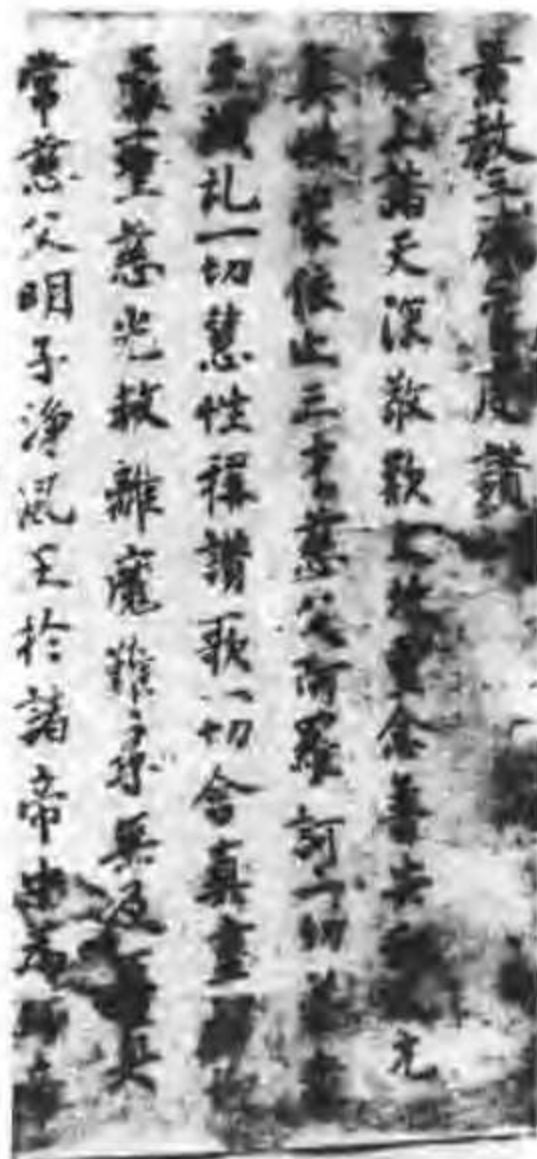 景教三威蒙度讚
無上諸天深敬歎大地重念普安元
真性蒙依止三才慈父阿羅訶一切善眾
至誠礼一切慧性稱讚歌一切含真盡歸仰
蒙聖慈光救離魔難尋無及正真
常慈父明子淨風王於諸帝中為師帝